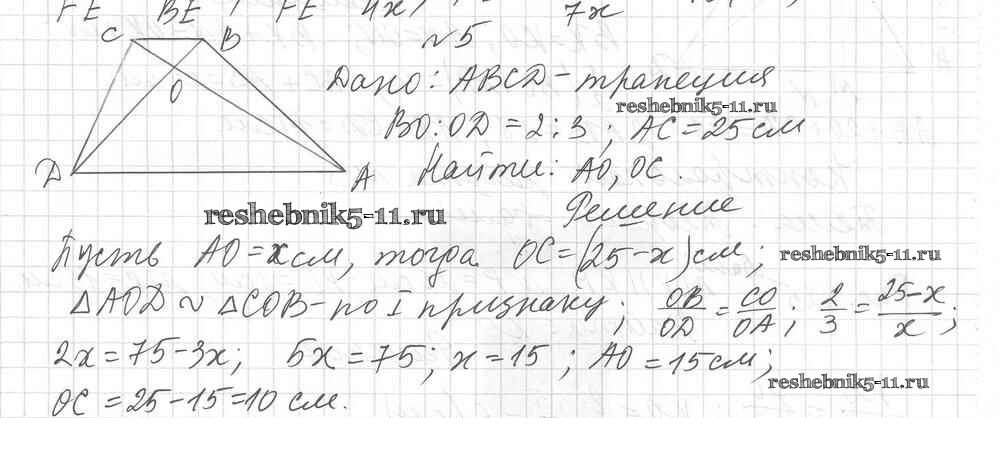 FE BE FE 4x 7x
№5
C B
O
D A
Дано: ABCD - трапеция
reshebnik5-11.ru
BO:OD = 2:3; AC = 25 см
Найти: AO, OC.
reshebnik5-11.ru
Решение
Пусть AO = x см, тогда OC = (25 - x) см;
reshebnik5-11.ru
△AOD ~ △COB - по I признаку; OB/OD = CO/OA; 2/3 = 25-x/x;
2x = 75 - 3x; 5x = 75; x = 15; AO = 15 см;
reshebnik5-11.ru
OC = 25 - 15 = 10 см.